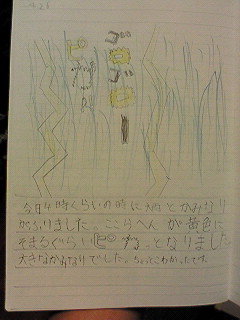 4.23
ピ
ゴ
ゴ
今日4時くらいの時に雨とかみなり
がふりました。ここらへんが黄色に
そまるぐらいピずっとなりました
大きなかみなりでした。ちょっとこわかったです。